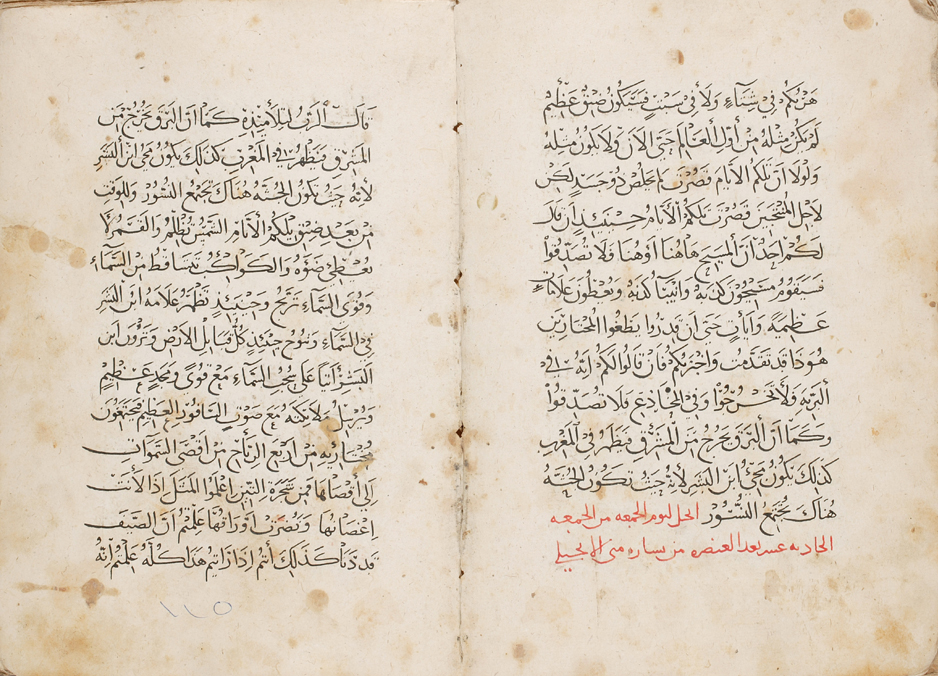 هربكم في شتاء ولا في سبت فسيكون ضيق عظيم
لم يكن مثله من أول العالم حتى الآن ولا يكون مثله
ولولا ان تلكم الأيام قصرن لم يخلص ذو جسد لكن
لاجل المنتخبين قصرن تلكم الأيام حينئذ إن قال
لكم احد أن المسيح هاهنا أو هنا فلا تصدقوا
فسيقوم مسيحيون كذبه وانبيآ كذبه ويعطون علامات
عظيمة وآيات حتى أن قدروا يطغوا المختارين
هوذا قد تقدمت واخبرتكم فان قالوا لكم انه في
البريه ولا تخرجوا وفي المخادع فلا تصدقوا
وكما أن البرق يخرج من المشرق فيظهر في المغرب
كذلك يكون مجيء ابن البشر لأنه حيث تكون الجثه
هناك يجتمع النسور انجيل ليوم الجمعه من الجمعه
الحاديه عشر بعد العنصره من بشاره متى الانجيلي
قال الرب لتلاميذه كما ان البرق يخرج من
المشرق ويظهر في المغرب كذلك يكون مجيء ابن البشر
لأنه حيث تكون الجثه هناك يجتمع النسور وللوقت
من بعد ضيق تلكم الأنام الشمس تظلم والقمر لا
يعطي ضوه والكواكب تتساقط من السماء
وقوى السماء ترتج وحينئذ تظهر علامه ابن البشر
في السماء وتنوح حينئذ كل قبايل الأرض وترون ابن
البشر آتيا على سحب السماء مع قوى ومجد عظيم
ويرسل ملائكته مع صوت الناقور العظيم فيجمعون
مختاريه من أربع الرياح من أقصى السموات
إلى أقصاها فمن شجره التين اعلموا المثل إذا لانت
اغصانها وبصرت أوراقها علمتم ان الصيف
قد دنا كذلك أنتم إذا رايتم هذا كله علمتم انه
١١٥